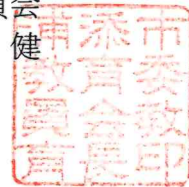 会
健
浦添市
教育委
員会教
育長印